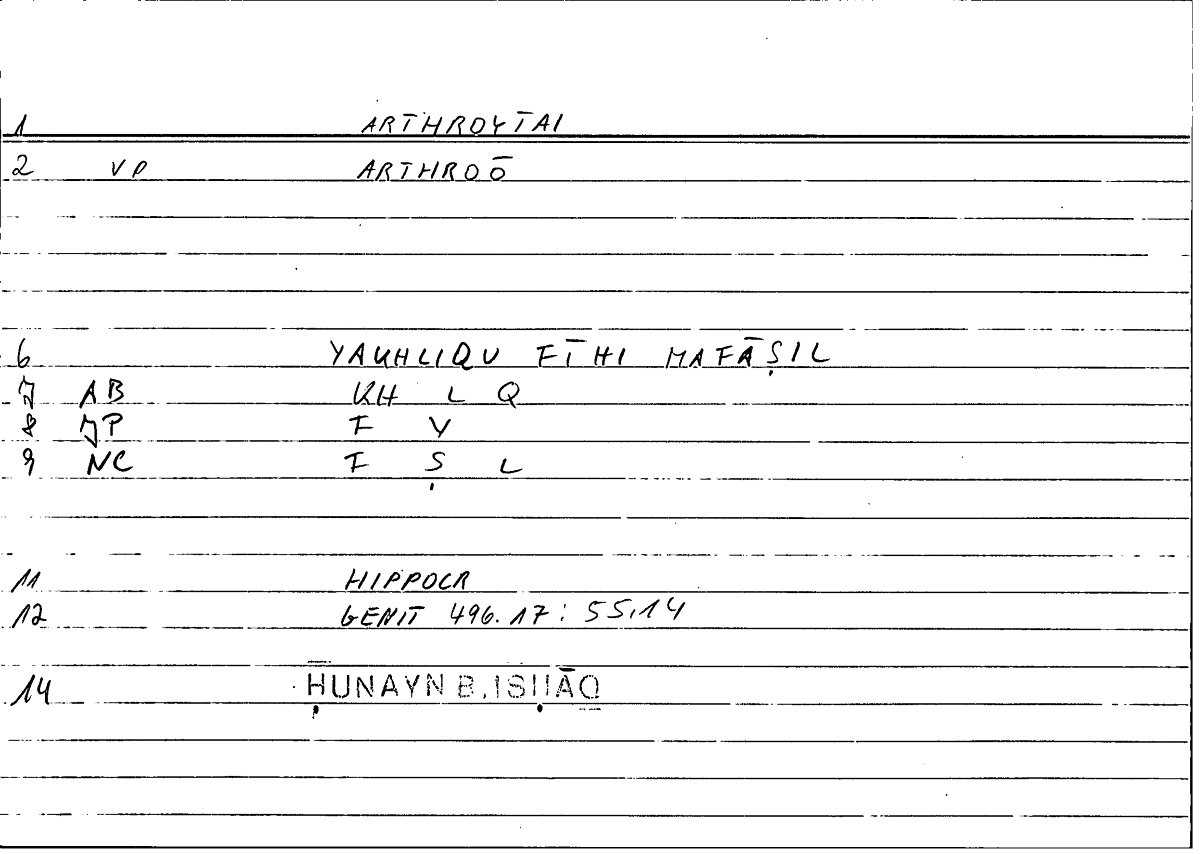 1 ARTHROYTAI
2 VP ARTHROŌ
6 YAKHLIQU FĪHI MAFĀṢIL
7 AB KH L Q
8 JP F Y
9 NC F Ṣ L
11 HIPPOCR
12 GENIT 496.17: 55,14
14 ḤUNAYN B. ISḤĀQ